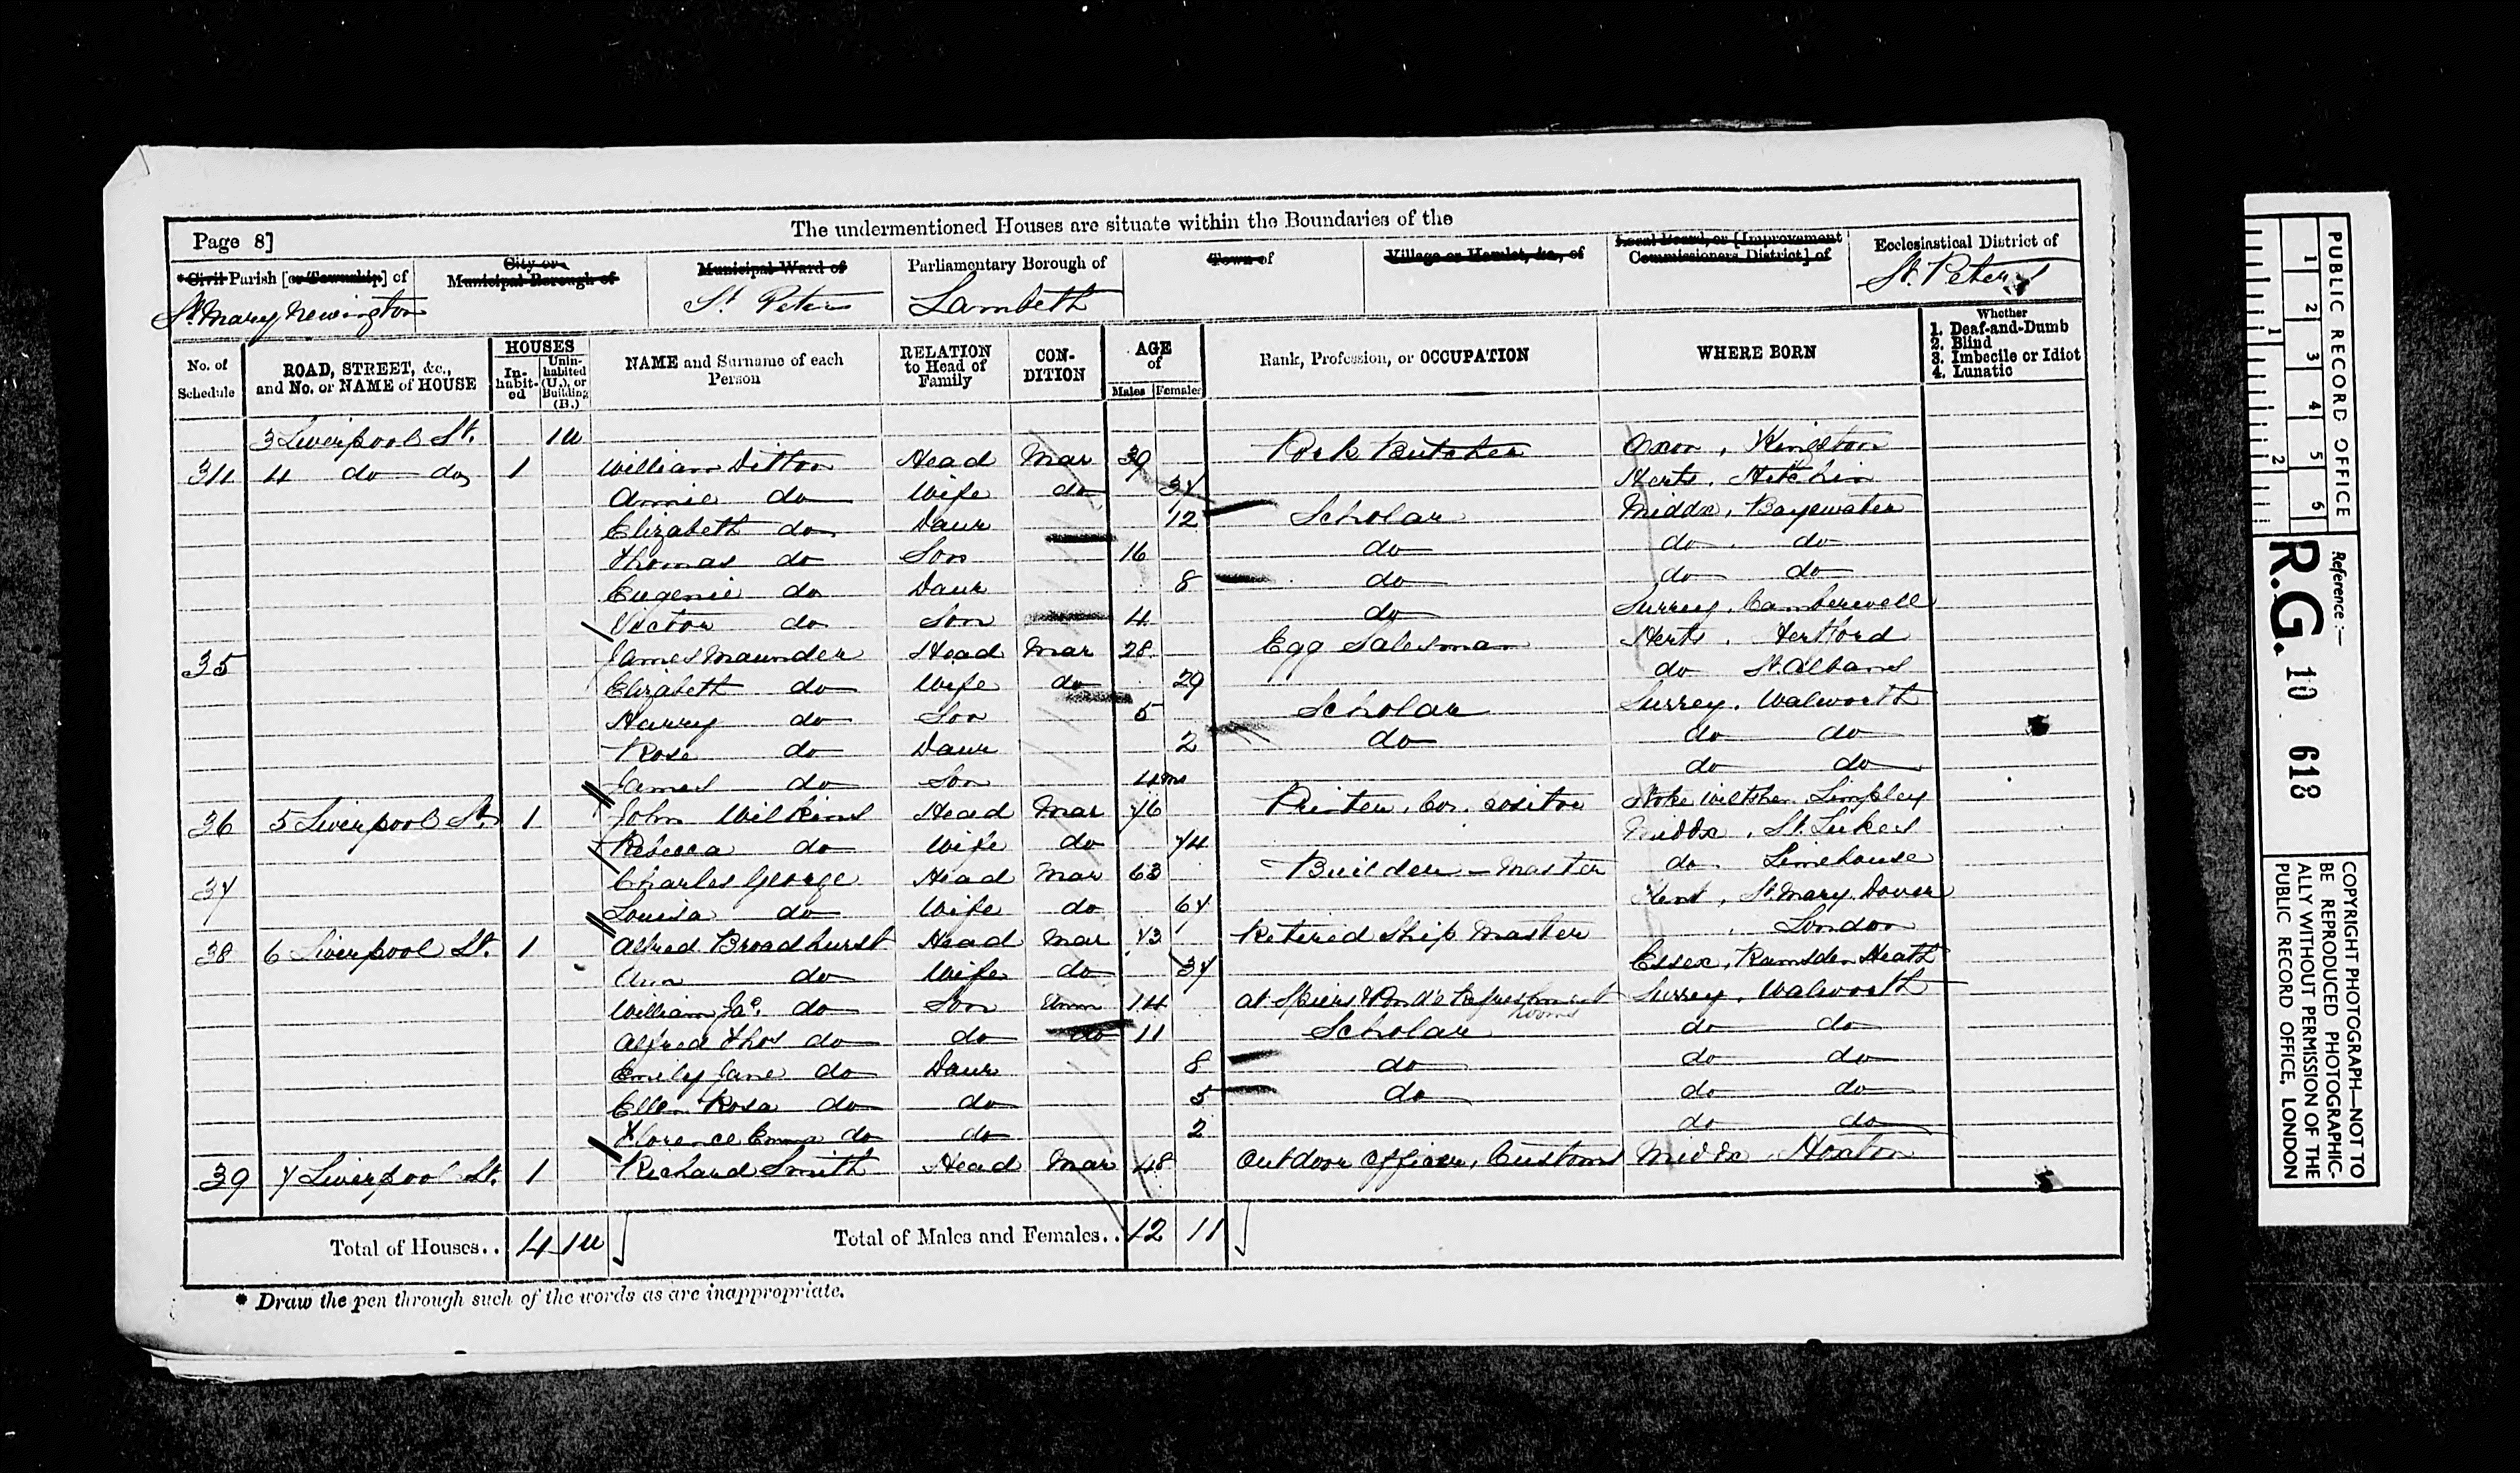 The undermentioned Houses are situate within the Boundaries of the
Page 8]
*Civil Parish [or Township] of
City or Municipal Borough of
Municipal Ward of
Parliamentary Borough of
Town of
Village or Hamlet, &c., of
Local Board, or [Improvement Commissioners District] of
Ecclesiastical District of
St. Mary Newington
St Peters
Lambeth
St. Peters
No. of Schedule
ROAD, STREET, &c., and No. or NAME of HOUSE
HOUSES
In-habit-ed
Unin-habited (U.), or Building (B.)
NAME and Surname of each Person
RELATION to Head of Family
CON-DITION
AGE of
Males
Females
Rank, Profession, or OCCUPATION
WHERE BORN
Whether
1. Deaf-and-Dumb
2. Blind
3. Imbecile or Idiot
4. Lunatic
3 Liverpool St. 1U
34 4 do do 1 William Ditton Head Mar 39 Pork Butcher Oxon, Kingston
Annie do Wife do 37 Herts. Hitchin
Elizabeth do Daur 12 Scholar Middx, Bayswater
Thomas do Son 16 do do do
Eugenie do Daur 8 do do do
Victor do Son 4 do Surrey. Camberwell
35 James Maunder Head Mar 28 Egg Salesman Herts. Hertford
Elizabeth do Wife do 29 do St Albans
Harry do Son 5 Scholar Surrey. Walworth
Rose do Daur 2 do do do
James do Son 4ms do do
36 5 Liverpool St. 1 John Wilkins Head Mar 76 Printer, Stoke Wiltshr. Limpley
Rebecca do Wife do 74 Middx, St. Lukes
37 Charles George Head Mar 63 Builder - Master do Limehouse
Louisa do Wife do 67 Kent, St. Mary Dover
38 6 Liverpool St. 1 Alfred Broadhurst Head Mar 73 Retired Ship Master London
Ann do Wife do 37 Essex, Ramsden Heath
William Jas. do Son Unm 14 at Spiers & Pond's Refreshment Rooms Surrey. Walworth
Alfred Thos do do do 11 Scholar do do
Emily Jane do Daur 8 do do do
Ellen Rosa do do 5 do do do
Florence Emma do do 2 do do
39 7 Liverpool St. 1 Richard Smith Head Mar 48 Outdoor Officer, Customs Middx, Hoxton
Total of Houses.. 4 1U
Total of Males and Females.. 12 11
* Draw the pen through such of the words as are inappropriate.
PUBLIC RECORD OFFICE
1 2 3 4 5 6
1 2
Reference :-
R.G. 10 618
COPYRIGHT PHOTOGRAPH—NOT TO
BE REPRODUCED PHOTOGRAPHIC-
ALLY WITHOUT PERMISSION OF THE
PUBLIC RECORD OFFICE, LONDON